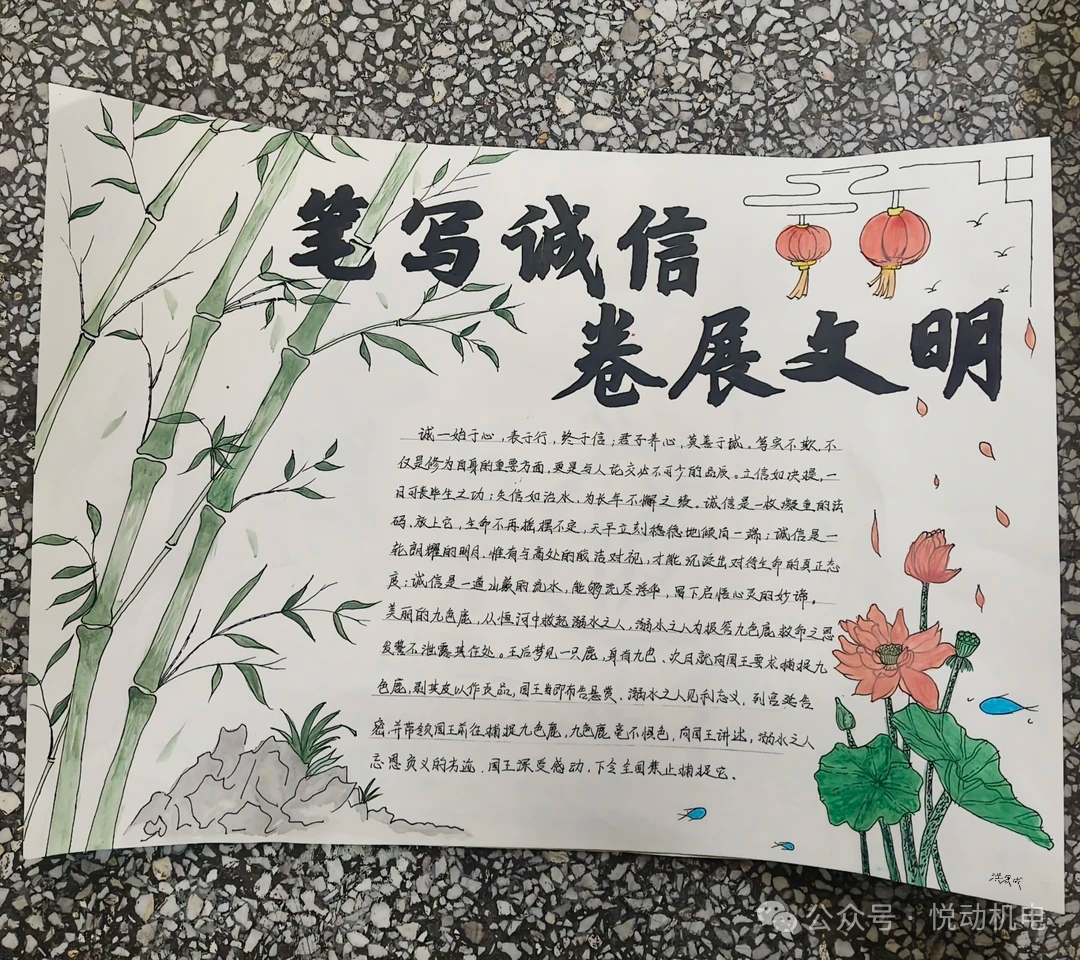 笔写诚信
卷展文明
诚一始于心，表于行，终于信；君子养心，莫善于诚。笃实不欺，不
仅是修为自身的重要方面，更是与人论交必不可少的品质。立信如快提，一
日可长毕生之功；失信如治水，为长年不懈之绩。诚信是一枚凝重的法
码，放上它，生命不再摇摆不定，天平立刻稳稳地倾向一端；诚信是一
轮朗耀的明月，惟有与高处的皎洁对视，才能沉淀出对待生命的真正态
度；诚信是一道山巅的流水，能够洗尽浮华，留下启悟心灵的妙谛。
美丽的九色鹿，从恒河中救起溺水之人，溺水之人为报答九色鹿救命之恩
发誓不泄露其住处。王后梦见一只鹿，身有九色、次日就向国王要求捕捉九
色鹿，剥其皮以作衣品，国王当即布告悬赏，溺水之人见利忘义，到宫廷告
密，并带领国王前往捕捉九色鹿，九色鹿毫不惧色，向国王讲述，溺水之人
忘恩负义的劣迹、国王深受感动，下令全国禁止捕捉它。
公众号·悦动机电